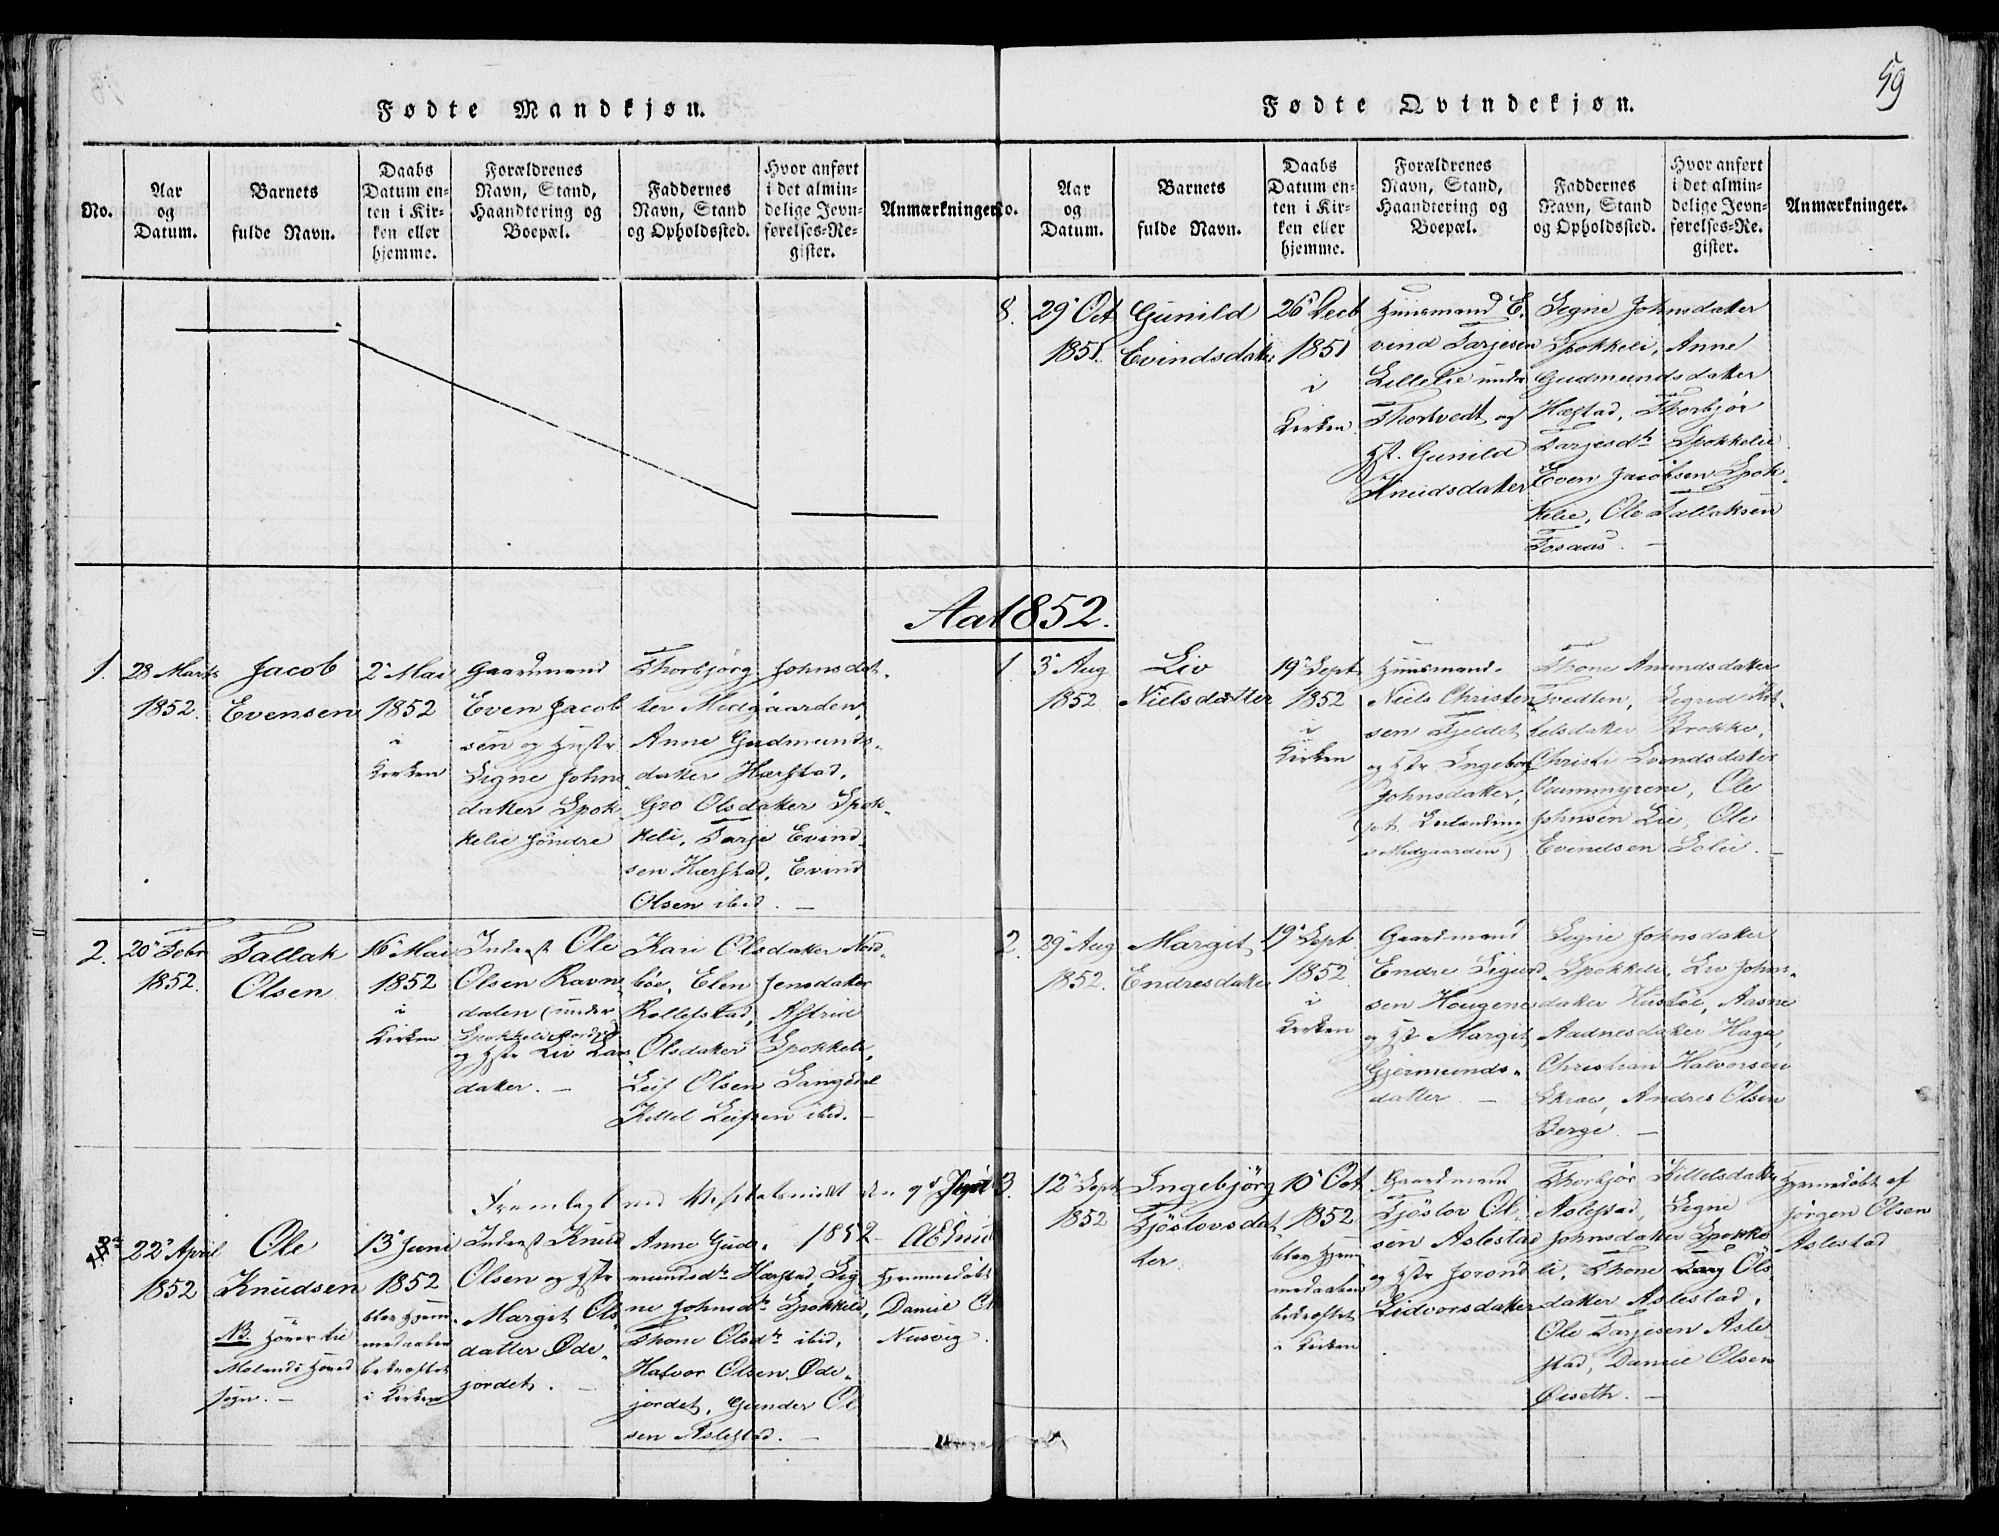 59
Fødte Mandkjøn.
No.
Aar
og
Datum.
Barnets
fulde Navn.
Daabs
Datum en-
ten i Kir-
ken eller
hjemme.
Forældrenes
Navn, Stand,
Haandtering og
Boepæl.
Faddernes
Navn, Stand
og Opholdssted.
Hvor anført
i det almin-
delige Jevn-
førelses-Re-
gister.
Anmærkninger.
1.
28 Marts
1852.
Jacob
Evensen
2 Mai
1852
i
Kirken
Gaardmand
Even Jacob
sen og Hustr
Signe Johns
datter Spok
kelie søndre
Thorbjörg Johnsdat-
ter Midgaarden,
Anne Gudmunds-
datter Hærstad,
Gro Olsdatter Spok-
keli, Tarje Evind
sen Hærstad, Evind
Olsen ibid. —
2.
20 Febr
1852.
Tallak
Olsen
16 Mai
1852
i
Kirken
Inderst Ole
Olsen Ravn
dalen (under
Spokkeli nordre)
og Hstr Liv Lars
datter. —
Kari Olsdatter Nord-
böe, Elen Jensdatter
Rollelstad, Astrid
Olsdatter Spokkeli,
Leif Olsen Langedal
Kittel Leifsen ibid. —
22 April
1852
Ole
Knudsen
NB hører til
Molands Hoved
sogn. —
13 Juni
1852
blev hjem-
medaaben
bekræftet
i Kirken
Inderst Knud
Olsen og Hstr
Margit Ols
datter Øde-
jordet. —
Anne Gud-
mundsdtr Hærstad, Sig
ne Johnsdtr Spokkeli,
Thone Olsdtr ibid,
Halvor Olsen Øde-
jordet, Gunder Ol
sen Aslestad. —
1852
Hjemmedöbt
Daniel Ol
Nusvig.
Aar 1852.
Fødte Qvindekjøn.
No.
Aar
og
Datum.
Barnets
fulde Navn.
Daabs
Datum en-
ten i Kir-
ken eller
hjemme.
Forældrenes
Navn, Stand,
Haandtering og
Boepæl.
Faddernes
Navn, Stand
og Opholdssted.
Hvor anført
i det almin-
delige Jevn-
førelses-Re-
gister.
Anmærkninger.
8.
29 Oct
1851.
Gunild
Evindsdatter
26 Decb
1851
i
Kirken
Huusmand E-
vind Tarjesen
Lillelie under
Thortvedt og
Hst. Gunild
Knudsdatter
Signe Johnsdatter
Spokkeli, Anne
Gudmundsdatter
Hæstad, Thorbjör
Tarjesdtr Spokkelie
Even Jacobsen Spok-
kelie, Ole Tallaksen
Fosaas. —
1.
3 Aug
1852
Liv
Nielsdatter
19 Sept
1852
i
Kirken
Huusmand
Niels Christen
sen Fjeldet
og Hstr Ingeborg
Johnsdatter,
i Midgaarden)
Thone Anundsdatter
Tvedten, Sigrid Kit-
telsdatter Brokke,
Christi Svendsdatter
Vummyrene, Ole
Johnsen Lie, Ole
Evendsen Solie. —
2.
29 Aug
1852.
Margit
Endresdatter
19 Sept
1852
i
Kirken
Gaardmand
Endre Sigurd-
sen Hougene
og Hst Margit
Gjermunds-
datter. —
Signe Johnsdatter
Spokkeli, Liv Johns-
datter Husböe, Aasne
Aadnesdatter Haga,
Christian Halvorsen
Skrav, Andres Olsen
Berge. —
3.
12 Sept
1852
Ingebjörg
Tjöslovsdat
ter.
10 Oct
1852
blev hjem
medaaben
bekræftet
i Kirken
Gaardmand
Tjöslov Ol-
sen Aslestad
og Hstr Jorond
Lidvorsdatter
Thorbjör Kittelsdatter
Aslestad, Signe
Johnsdatter Spokke
li, Thone Ols
datter Aslestad,
Ole Tarjesen Asle-
stad, Daniel Olsen
Øiseth. —
Hjemmedöbt af
Jörgen Olsen
Aslestad